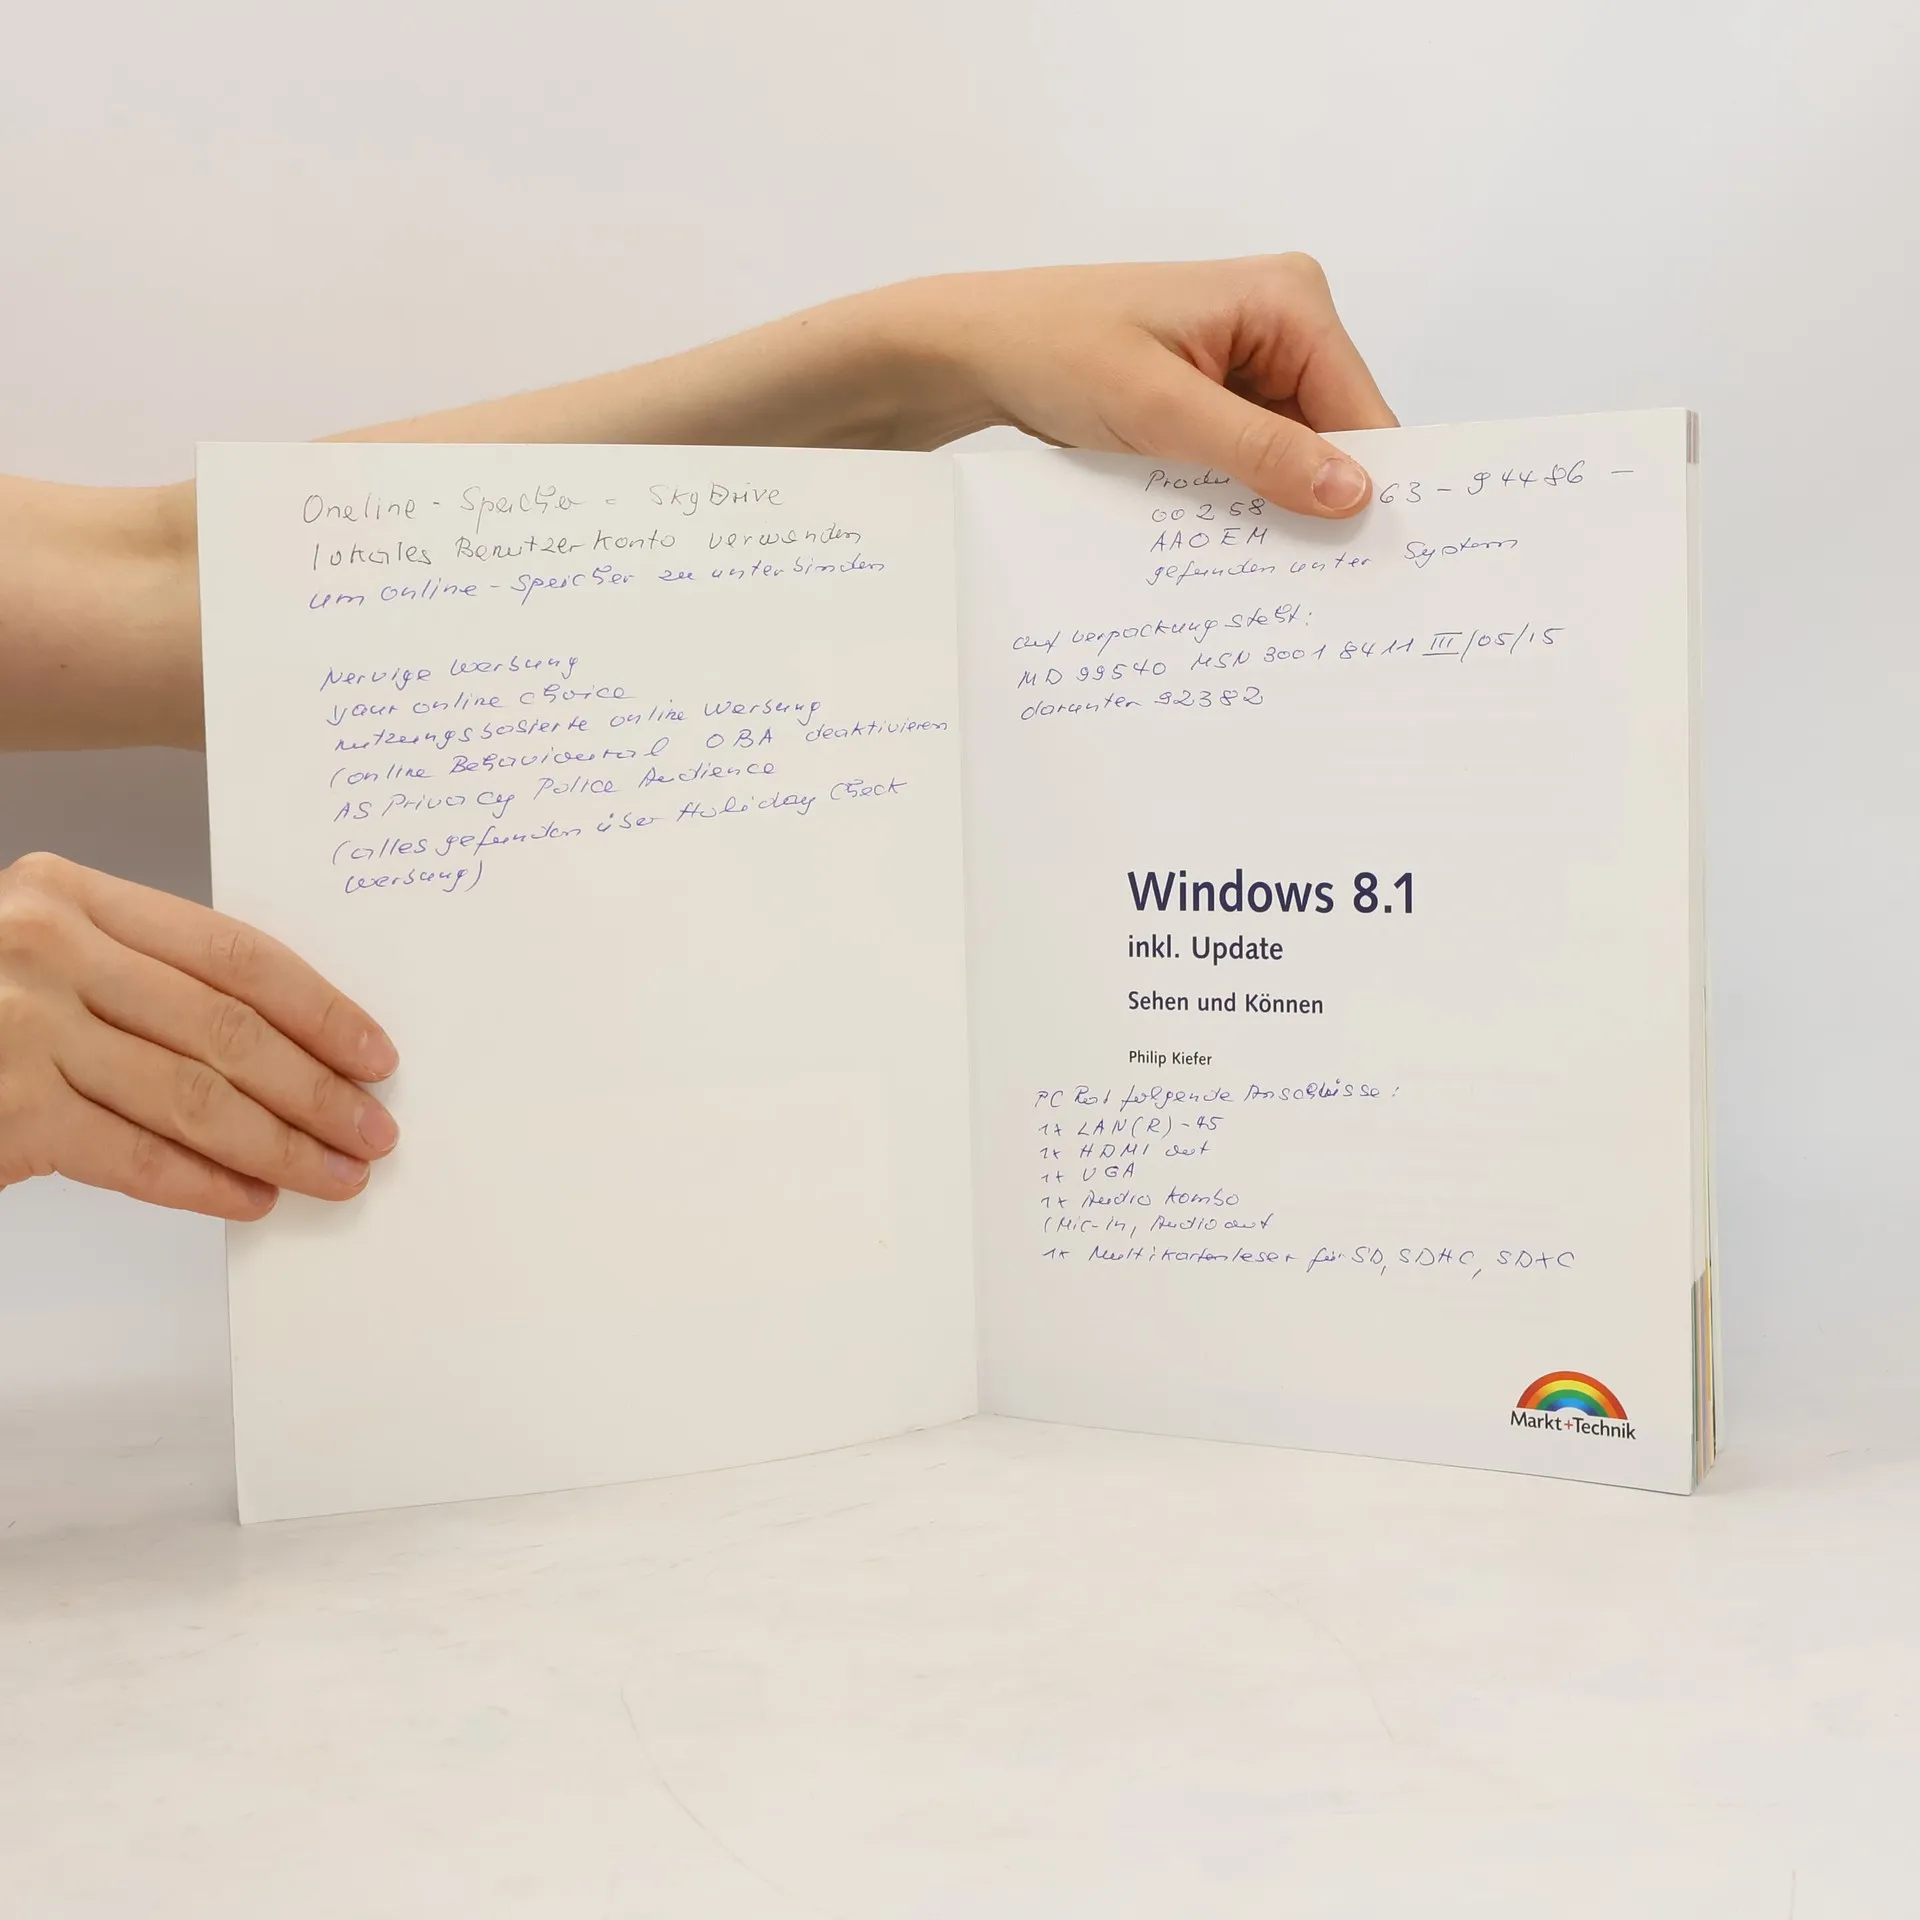 Oneline - Speicher = SkyDrive
lokales Benutzerkonto verwenden
um online - Speicher zu unterbinden
Nervige Werbung
your online choice
nutzungsbasierte online Werbung
(online Behavioural OBA deaktivieren
AS Privacy Police Audience
(alles gefunden über Holiday Check
Werbung)
Produ 63 - 94486 -
00258
AAOEM
gefunden unter System
auf Verpackung steht:
MD 99540 MSN 3001 8411 III/05/15
darunter 92382
Windows 8.1
inkl. Update
Sehen und Können
Philip Kiefer
PC hat folgende Anschlüsse:
1x LAN(R)-45
1x HDMI out
1x VGA
1x Audio Kombo
(Mic-in, Audio out
1x Multikartenleser für SD, SDHC, SDXC
Markt+Technik